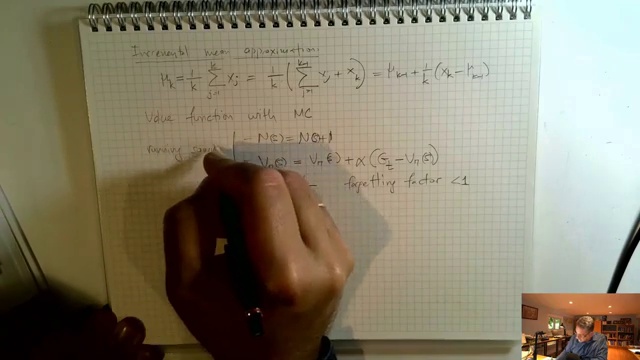 Incremental mean approximation:
μ_k = 1/k ∑_{j=1}^{k} x_j = 1/k ( ∑_{j=1}^{k-1} x_j + x_k ) = μ_{k-1} + 1/k ( x_k − μ_{k-1} )
Value function with MC
– N(s) = N(s)+1
running
– V_π(s) = V_π(s) + α ( G_t − V_π(s) )
forgetting factor <1